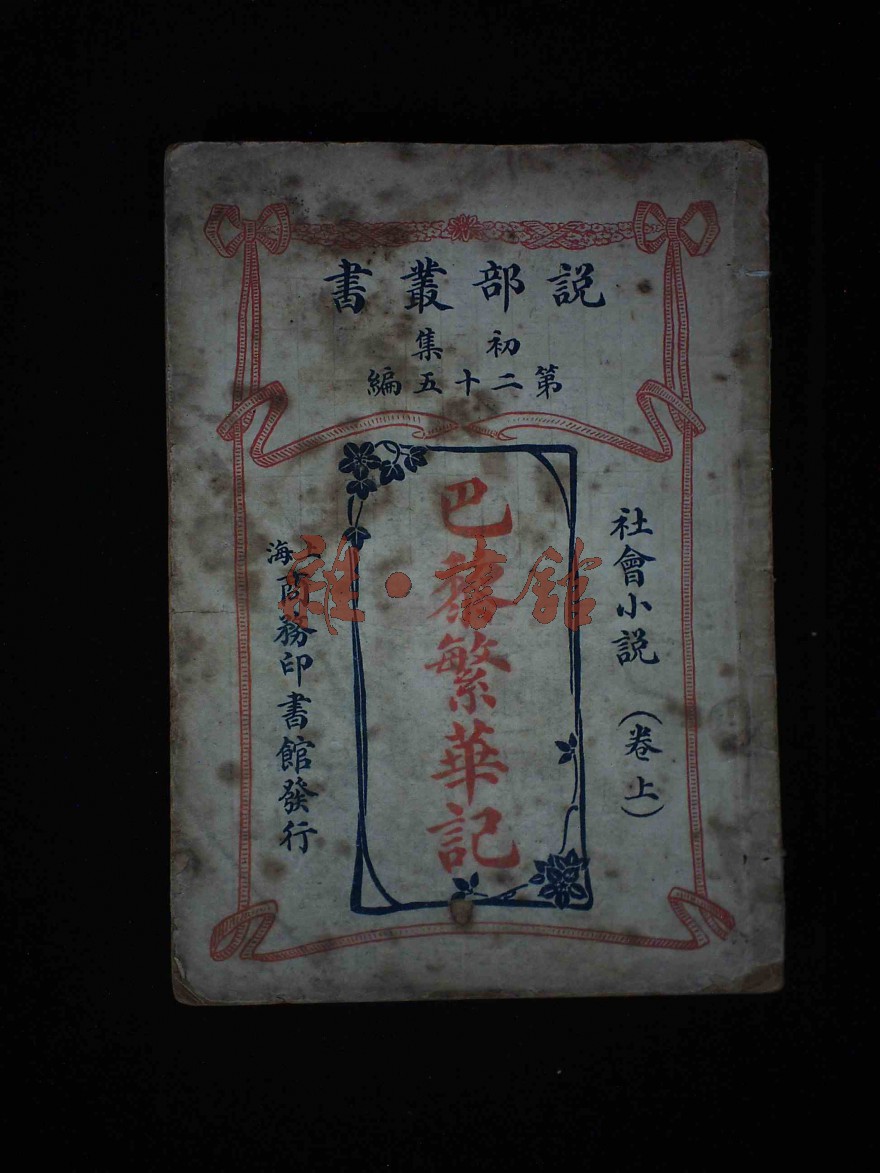 説部叢書
初集
第二十五編
社會小説（卷上）
巴黎繁華記
上海商務印書館發行
雜·書館